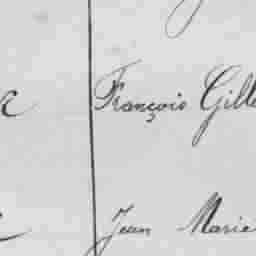 François Gille
Jean Marie